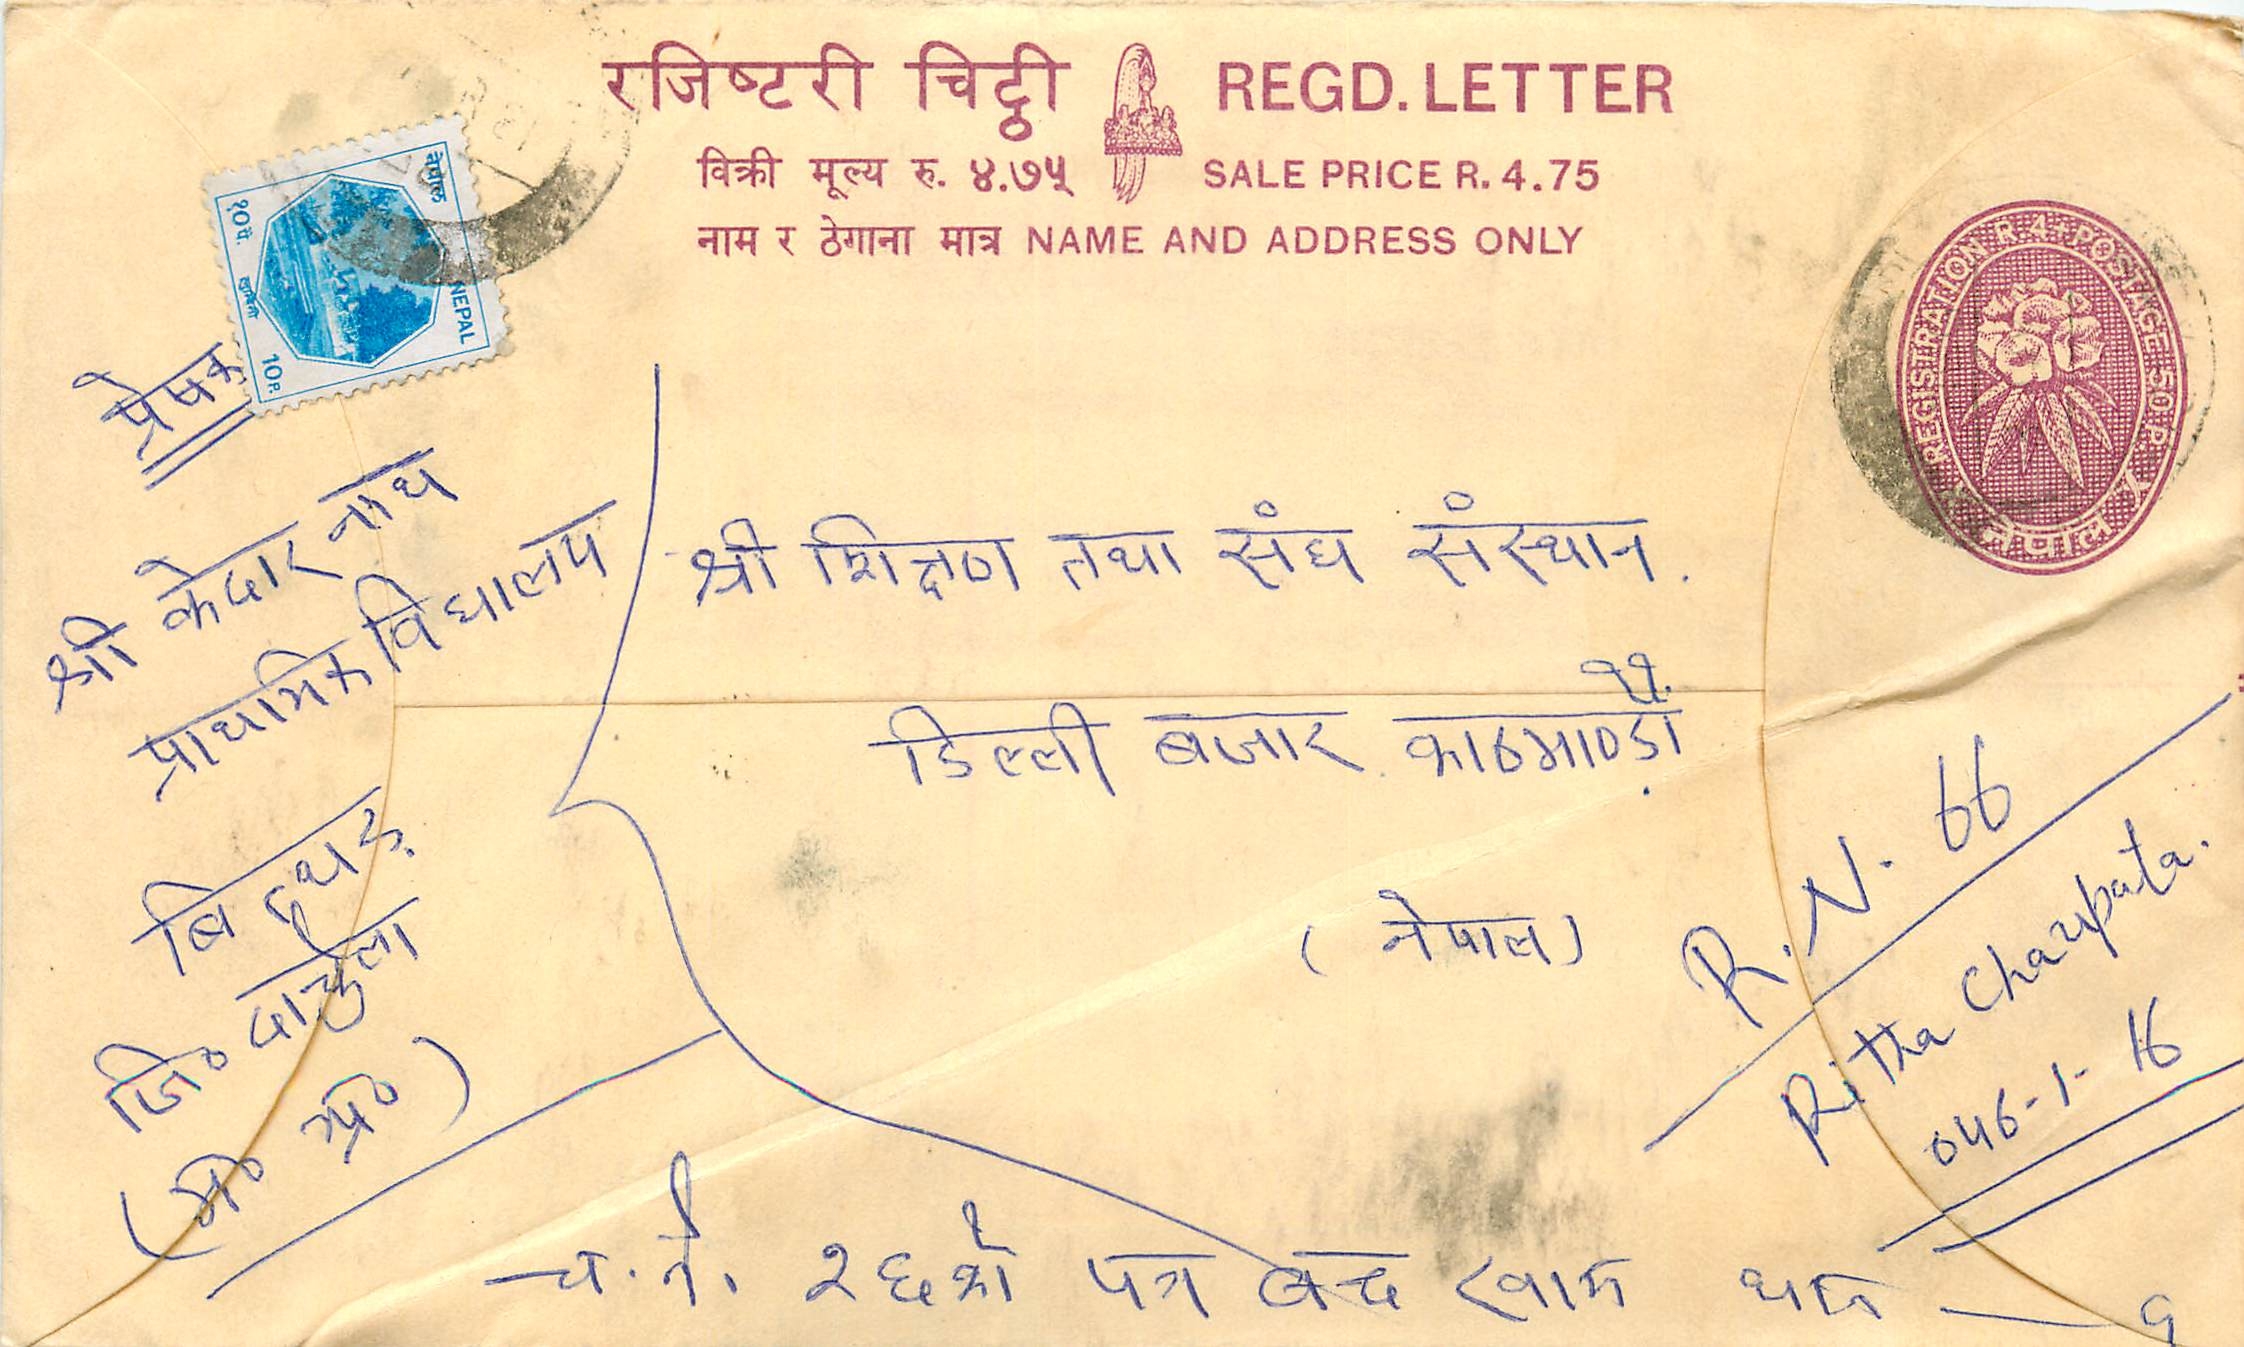 रजिष्टरी चिट्ठी REGD. LETTER
विक्री मूल्य रु. ४.७५ SALE PRICE R. 4.75
नाम र ठेगाना मात्र NAME AND ADDRESS ONLY
नेपाल
१० पै.
NEPAL
10 P.
REGISTRATION R. 4 + POSTAGE 50 P.
नेपाल
प्रेषक
श्री केदार नाथ
प्राथमिक विद्यालय
जि० दार्चुला
श्री शिक्षण तथा संघ संस्थान.
डिल्ली बजार काठमाण्डौ
(नेपाल)
R. N. 66
Ritha Chaupata.
046-1-16
च. नं. २६ को पत्र बन्द खाम थान — १